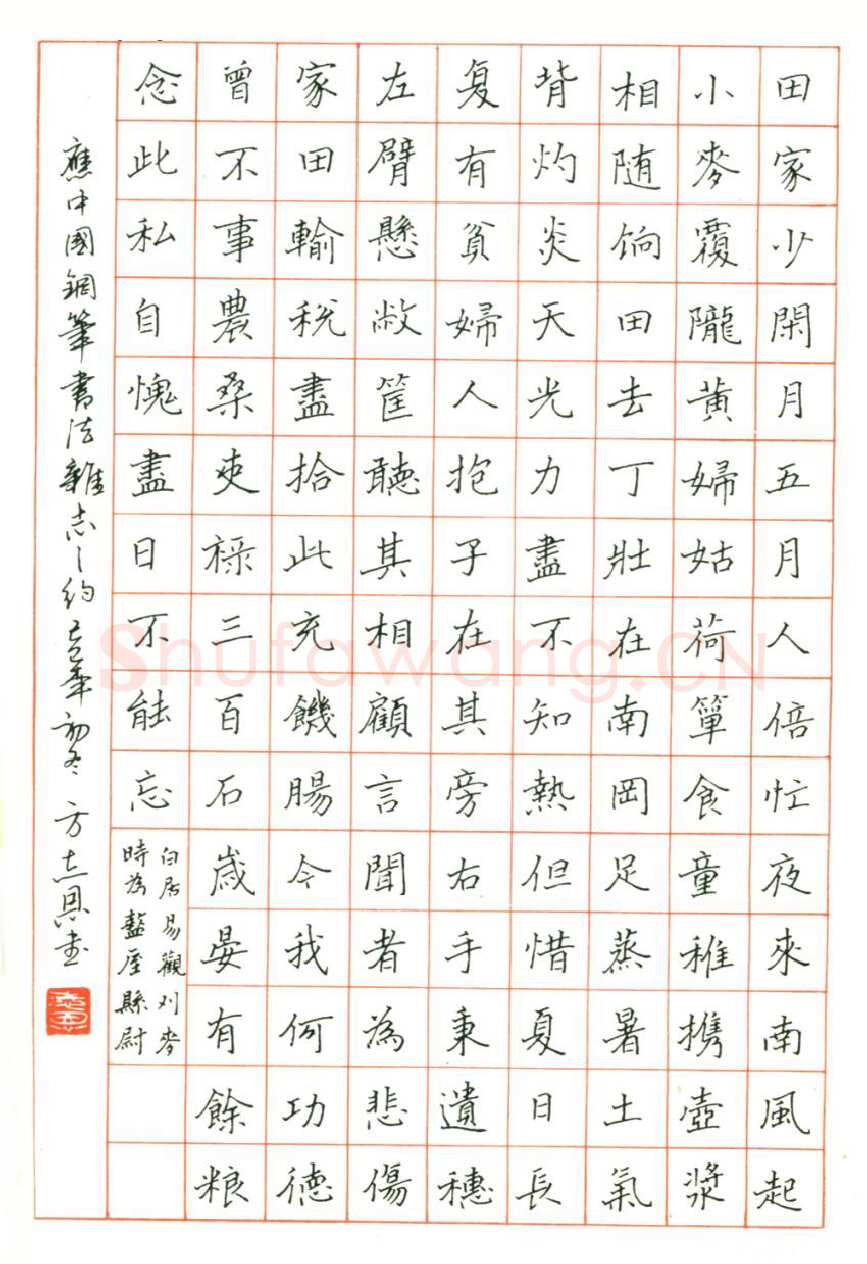 田家少閑月五月人倍忙夜來南風起
小麥覆隴黃婦姑荷簞食童稚携壺漿
相随饷田去丁壯在南岡足蒸暑土氣
背灼炎天光力盡不知熱但惜夏日長
复有貧婦人抱子在其旁右手秉遺穗
左臂懸敝筐聽其相顧言聞者為悲傷
家田輸税盡拾此充饑腸今我何功德
曾不事農桑吏禄三百石歲晏有餘粮
念此私自愧盡日不能忘
白居易觀刈麥
時為盩厔縣尉
應中國鋼筆書法雜志之約 年初冬 方志恩書
Shufawang.CN